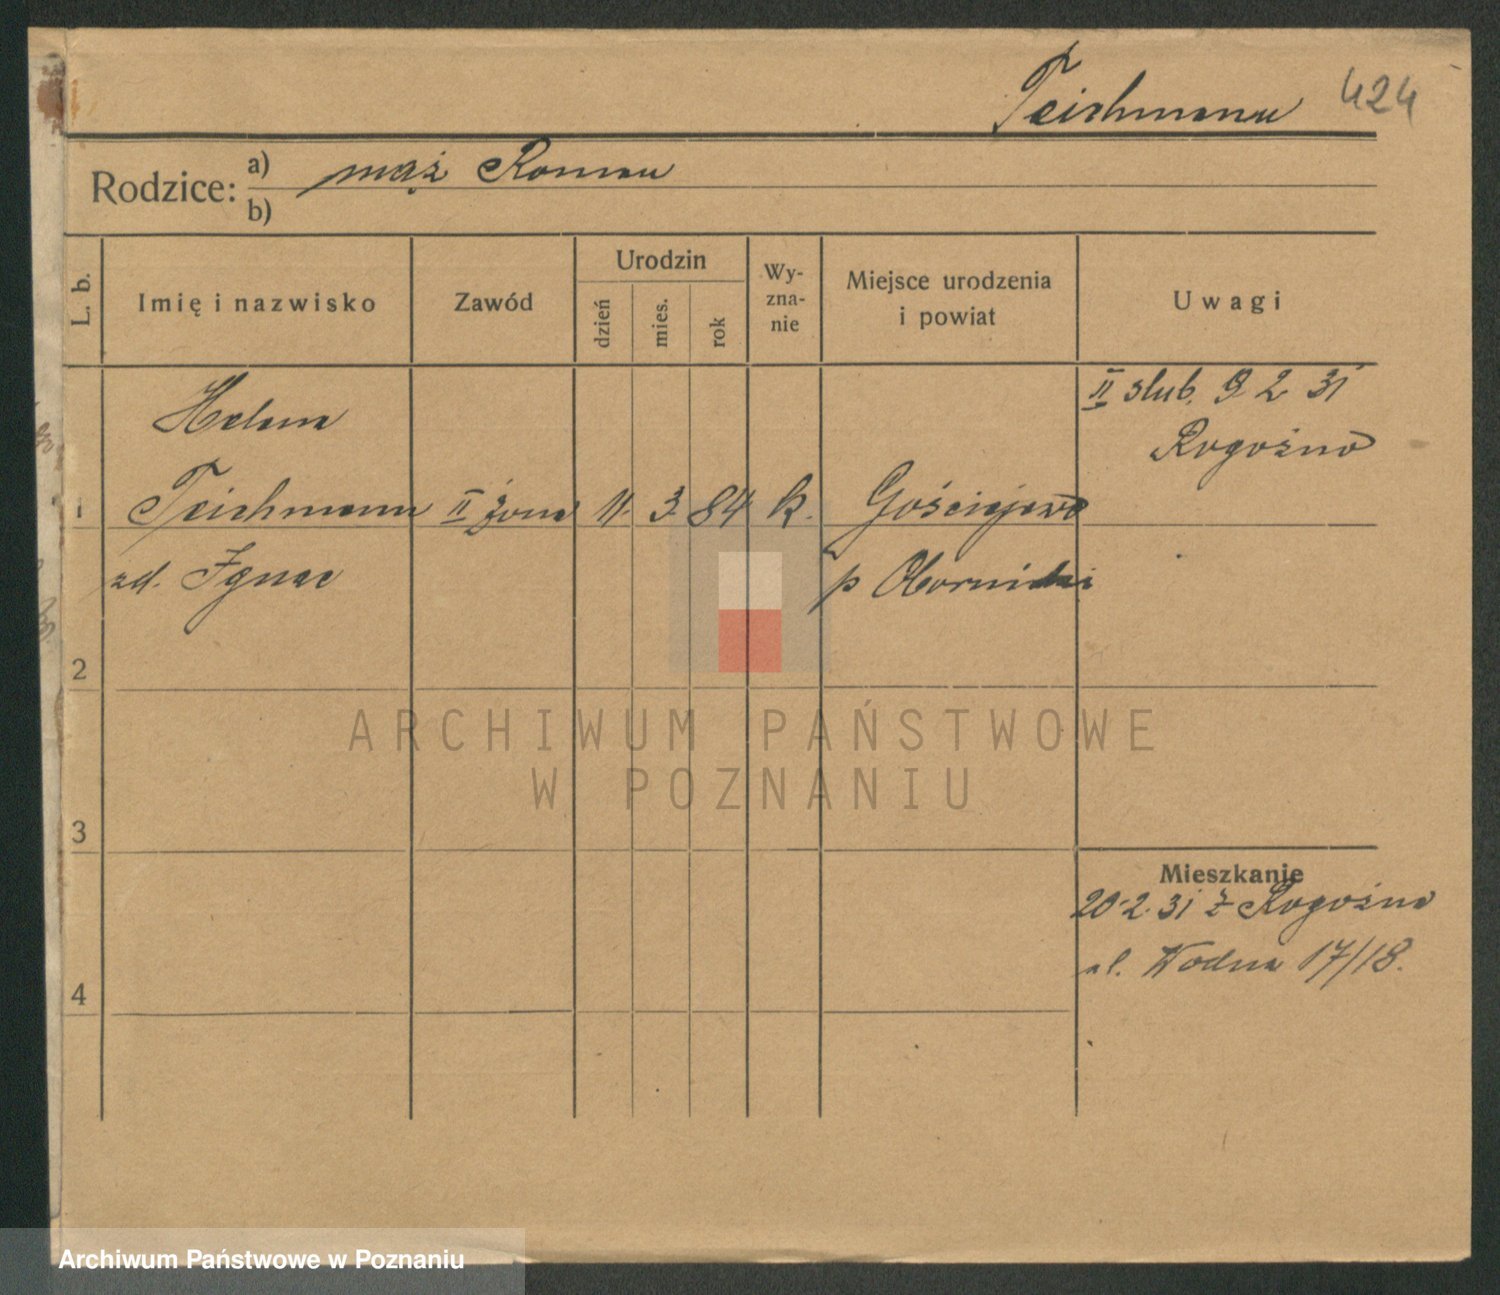 Teichmann 424
Rodzice: a) mąż Roman
b)
L. b.
Imię i nazwisko
Zawód
Urodzin
dzień
mies.
rok
Wy-
zna-
nie
Miejsce urodzenia
i powiat
Uwagi
Helena
II ślub. 9 2 31
Rogoźno
1 Teichmann II żona 11. 3 84 k. Gościejewo
zd. Ignac
p Obornicki
2
3
4
Mieszkanie
20.2.31 z Rogoźna
ul. Wodna 17/18.
ARCHIWUM PAŃSTWOWE
W POZNANIU
Archiwum Państwowe w Poznaniu